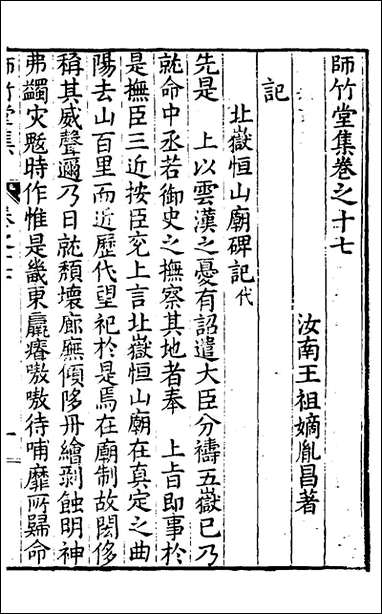 師竹堂集卷之十七
汝南王祖嫡胤昌著
記
北嶽恒山廟碑記代
先是　上以雲漢之憂有詔遣大臣分禱五嶽已乃
就命中丞若御史之撫察其地者奉　上旨即事於
是撫臣三近按臣兖上言北嶽恒山廟在真定之曲
陽去山百里而近歷代望祀於是焉在廟制故閎侈
稱其威聲邇乃日就頹壞廊廡傾陊丹繪剥蝕明神
弗蠲灾沴時作惟是畿東羸瘠嗷嗷待哺靡所歸命
師竹堂集
卷之十七
一